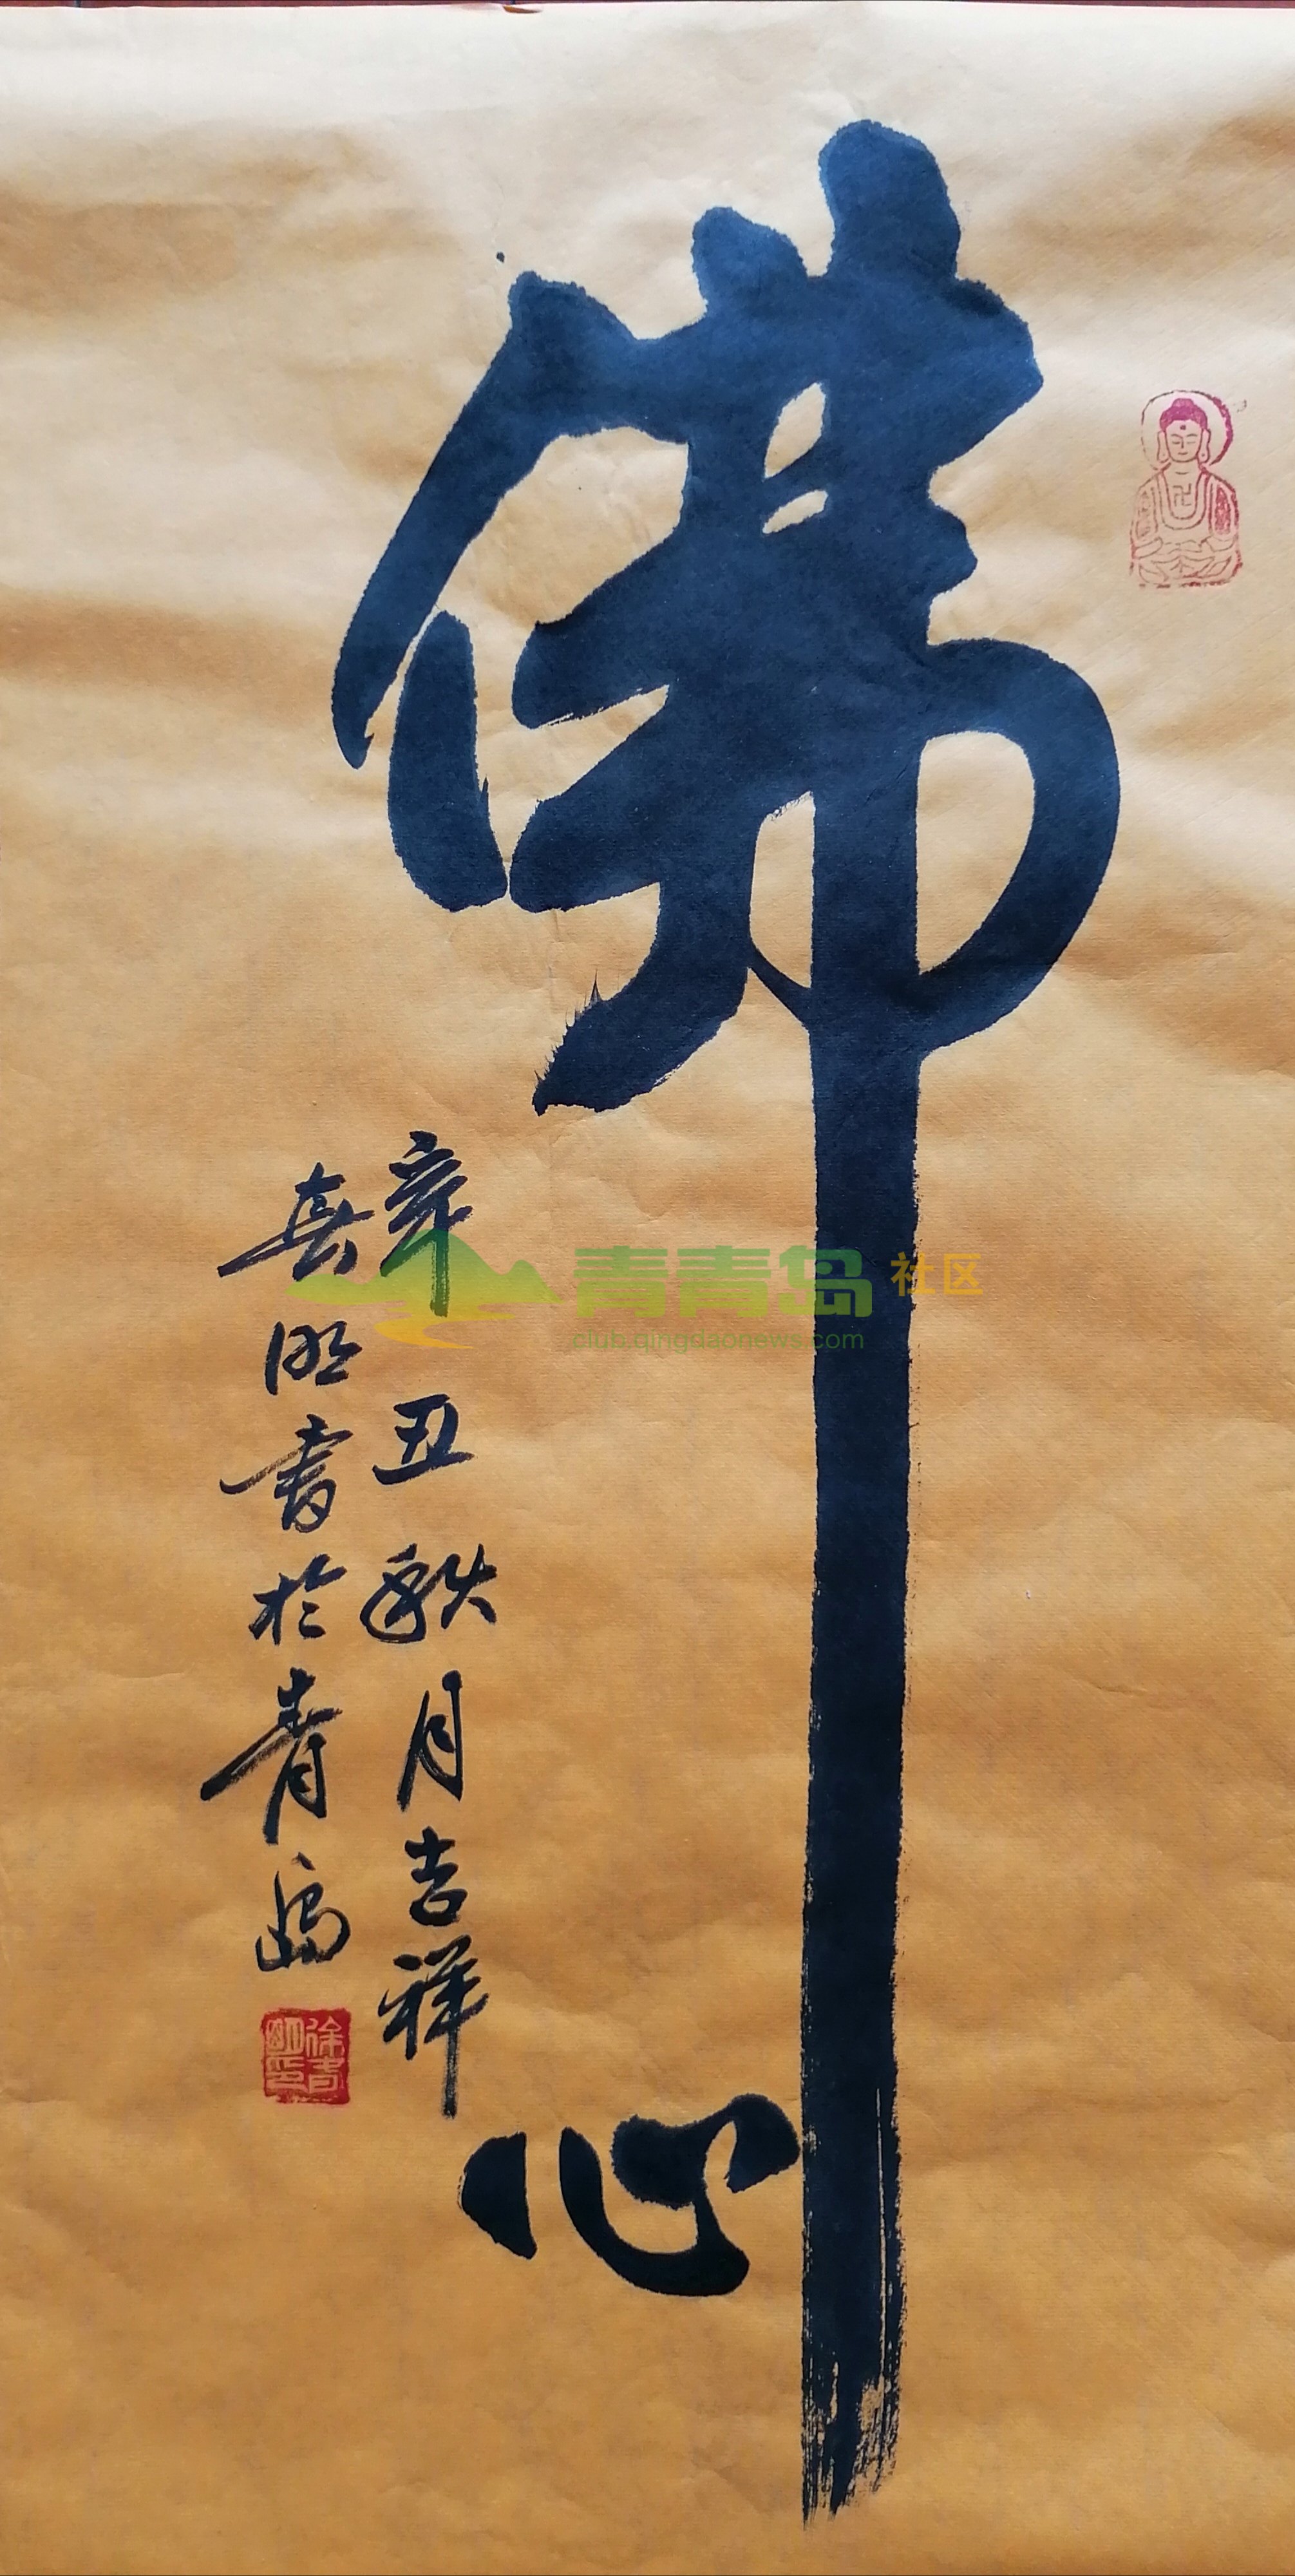 佛心
辛丑秋月吉祥
明書於青島
青青岛社区
club.qingdaonews.com